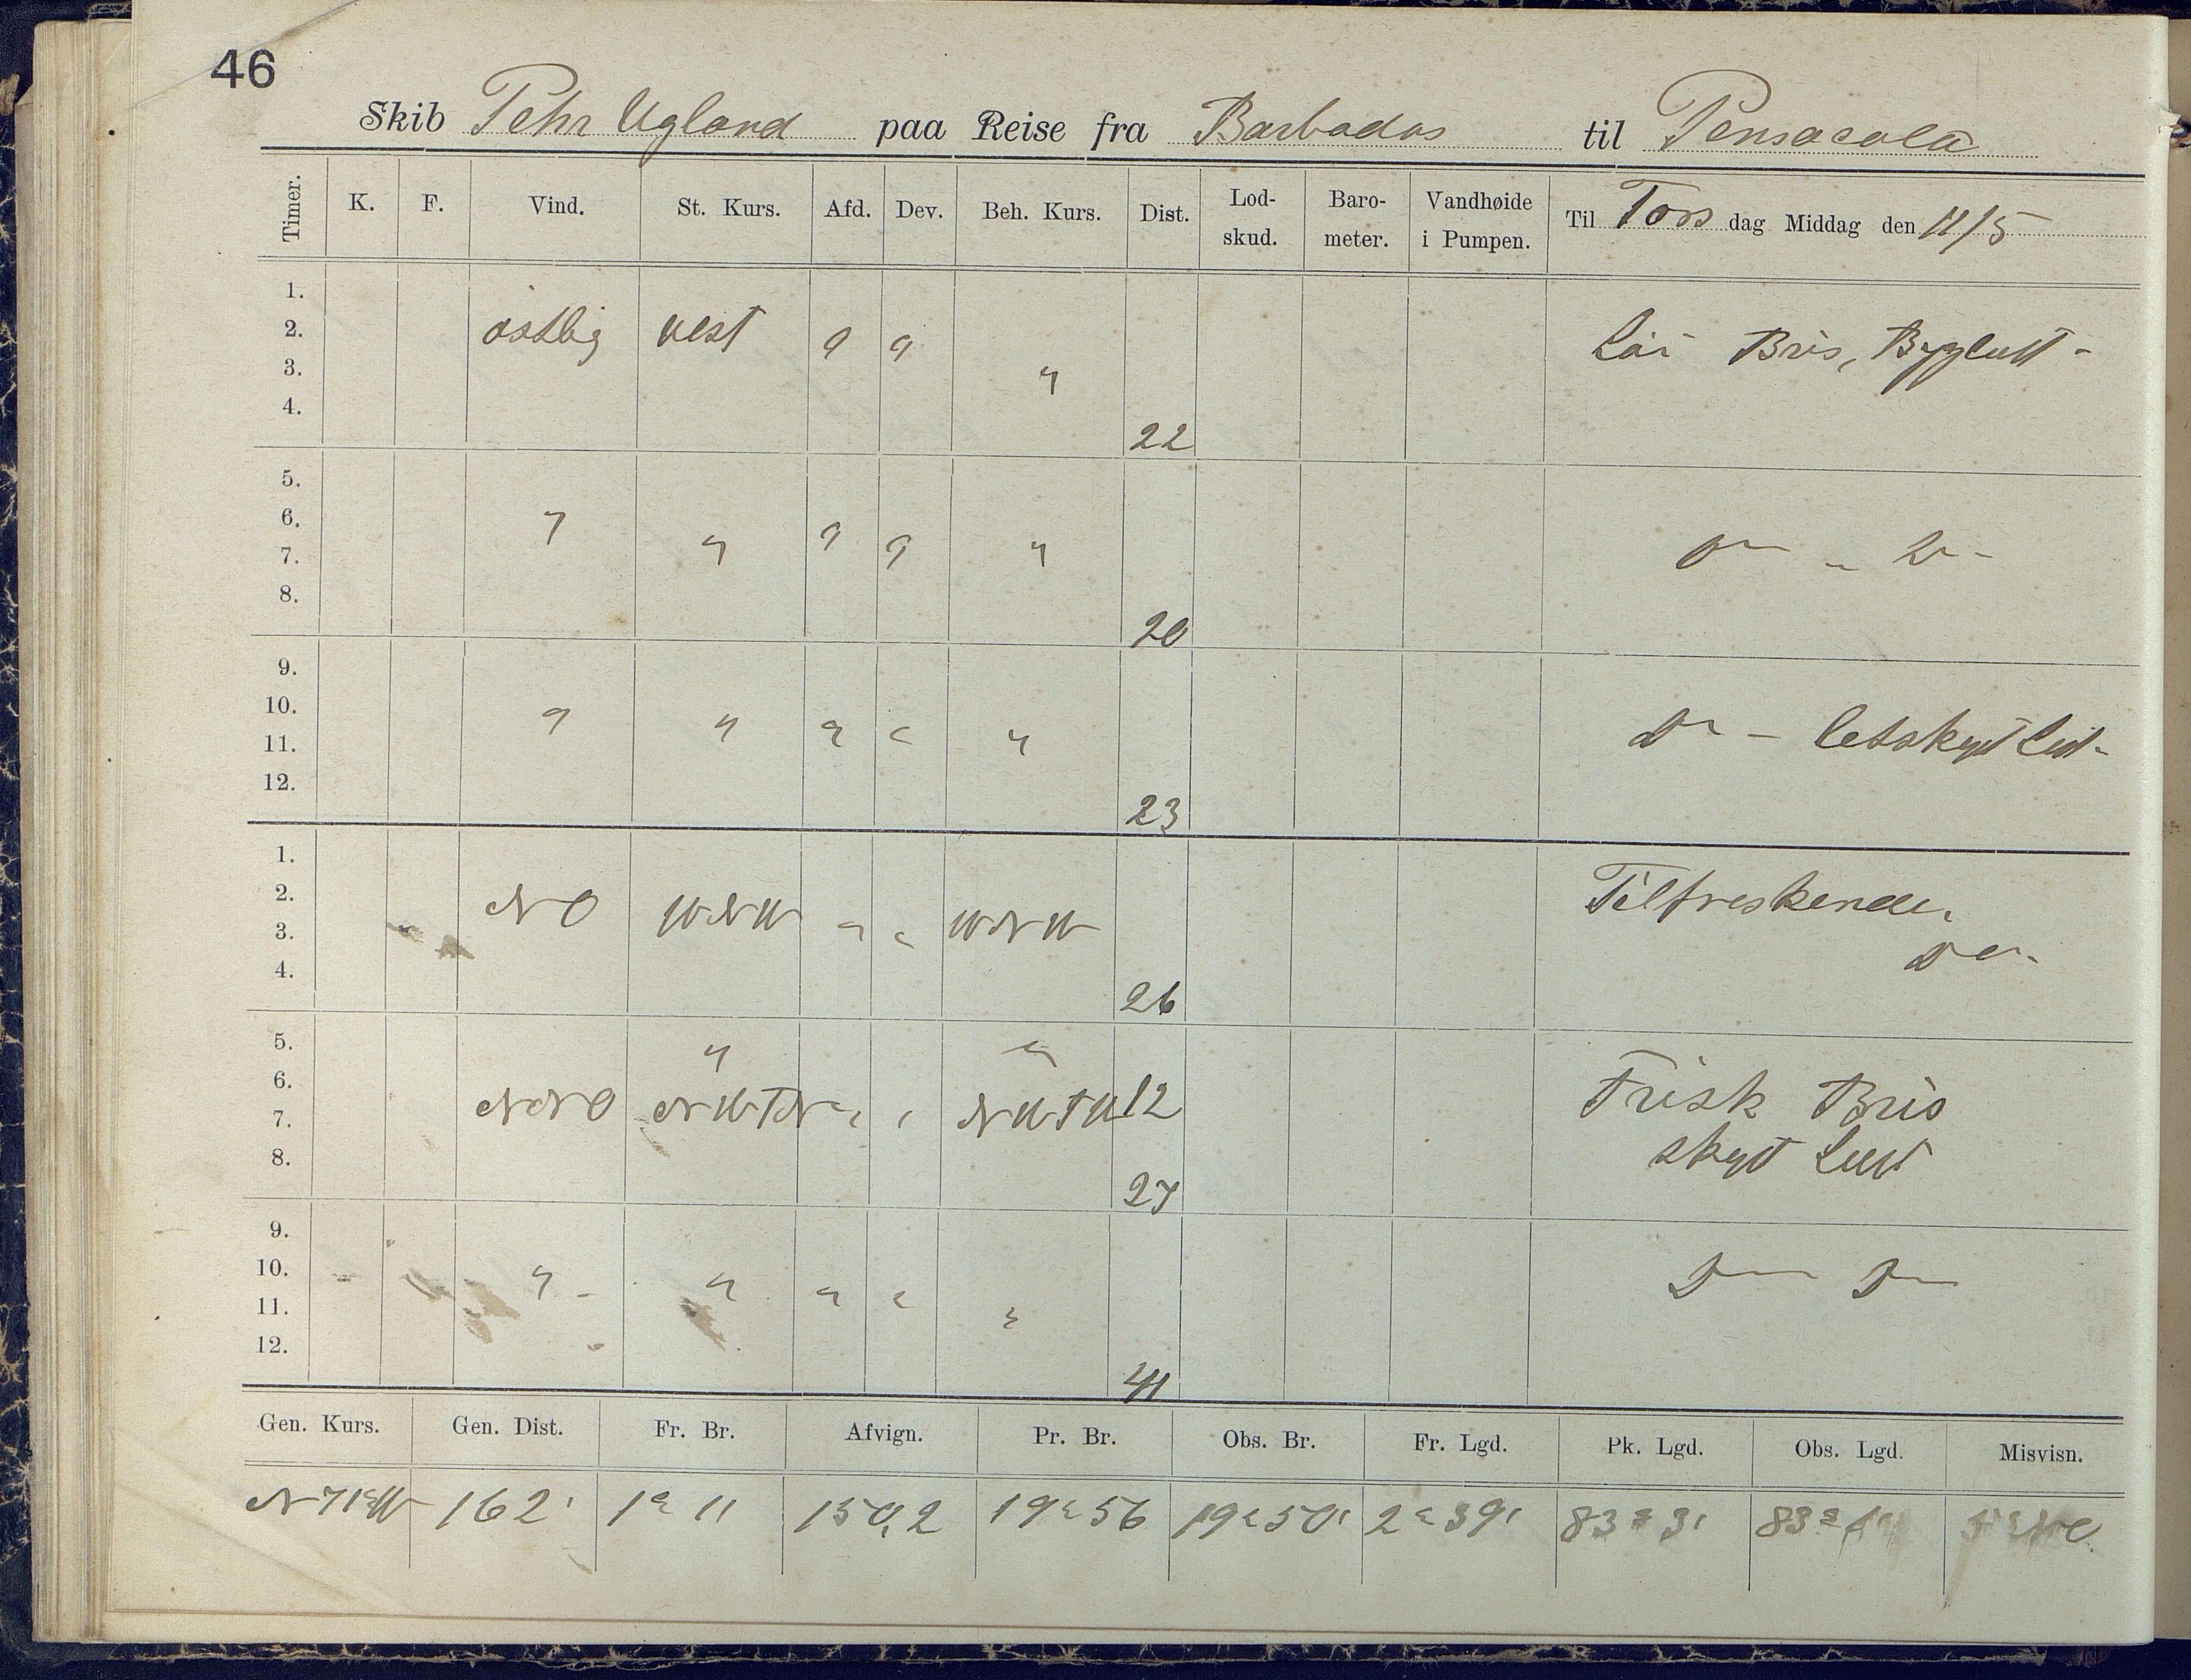 46
Skib Pehr Ugland paa Reise fra Barbados til Pensacola
Timer. K. F. Vind. St. Kurs. Afd. Dev. Beh. Kurs. Dist. Lod-skud. Baro-meter. Vandhøide i Pumpen. Til Tors dag Middag den 11/5
1.
2. østlig vest " " Lai Bris, Bygluft -
3. "
4. 22
5.
6. " " " " "
7. D— - D—
8. 20
9.
10. " " " " "
11. D— - letskyet Luft-
12. 23
1.
2. NO WNW " " WNW Tilfreskende.
3. Do-
4. 26
5. " "
6. NNO NWTN " " 12 Frisk Bris
7. skyet Luft
8. 27
9.
10. " - " " " " D— D—
11.
12. 41
Gen. Kurs. Gen. Dist. Fr. Br. Afvign. Pr. Br. Obs. Br. Fr. Lgd. Pk. Lgd. Obs. Lgd. Misvisn.
N71°W 162' 1° 11 150,2 19° 56 19° 50' 2° 39' 83° 3' 83°